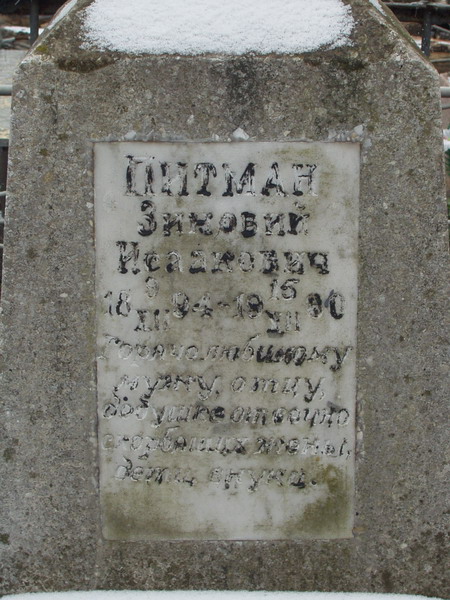 ПИТМАН
Зиновий
Исаакович
18 9/XII 94-19 15/XII 80
Горячо любимому
мужу, отцу,
дедушке от вечно
скорбящих жены,
дети, внука.